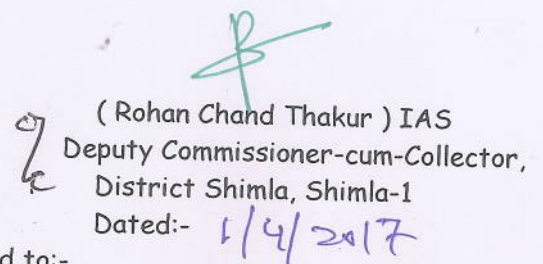 ( Rohan Chand Thakur ) IAS
Deputy Commissioner-cum-Collector,
District Shimla, Shimla-1
Dated:- 1/4/2017
d to:-